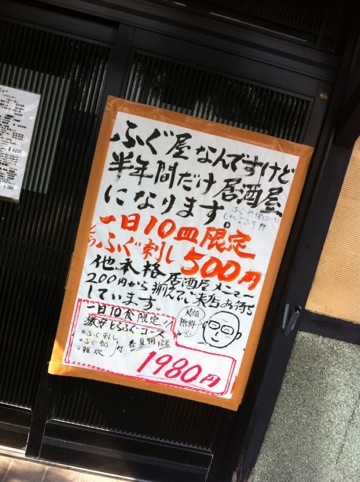 ふぐ屋なんですけど
半年間だけ居酒屋
になります。
一日10皿限定
ふぐ刺し 500円
他、本格居酒屋メニュー
200円から揃えてご来店お待ち
しています。
一日10食限定!!
激安とらふぐコース
・ふぐ刺し
・雑炊
1980円